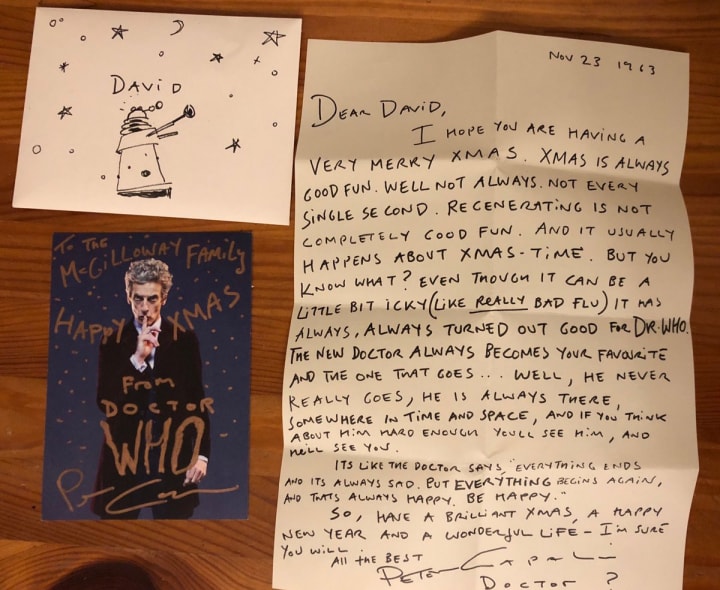 DAVID
TO THE
McGILLOWAY FAMILY
HAPPY XMAS
FROM
DOCTOR
WHO
NOV 23 1963
DEAR DAVID,
I HOPE YOU ARE HAVING A
VERY MERRY XMAS. XMAS IS ALWAYS
GOOD FUN. WELL NOT ALWAYS. NOT EVERY
SINGLE SECOND. REGENERATING IS NOT
COMPLETELY GOOD FUN. AND IT USUALLY
HAPPENS ABOUT XMAS-TIME. BUT YOU
KNOW WHAT? EVEN THOUGH IT CAN BE A
LITTLE BIT ICKY (LIKE REALLY BAD FLU) IT HAS
ALWAYS, ALWAYS TURNED OUT GOOD FOR DR. WHO.
THE NEW DOCTOR ALWAYS BECOMES YOUR FAVOURITE
AND THE ONE THAT GOES ... WELL, HE NEVER
REALLY GOES, HE IS ALWAYS THERE,
SOMEWHERE IN TIME AND SPACE, AND IF YOU THINK
ABOUT HIM HARD ENOUGH YOULL SEE HIM, AND
HE'LL SEE YOU.
ITS LIKE THE DOCTOR SAYS, "EVERYTHING ENDS
AND ITS ALWAYS SAD. BUT EVERYTHING BEGINS AGAIN,
AND THATS ALWAYS HAPPY. BE HAPPY."
SO, HAVE A BRILLIANT XMAS, A HAPPY
NEW YEAR AND A WONDERFUL LIFE - I'M SURE
YOU WILL.
ALL THE BEST
PETER CAPALDI
DOCTOR ?